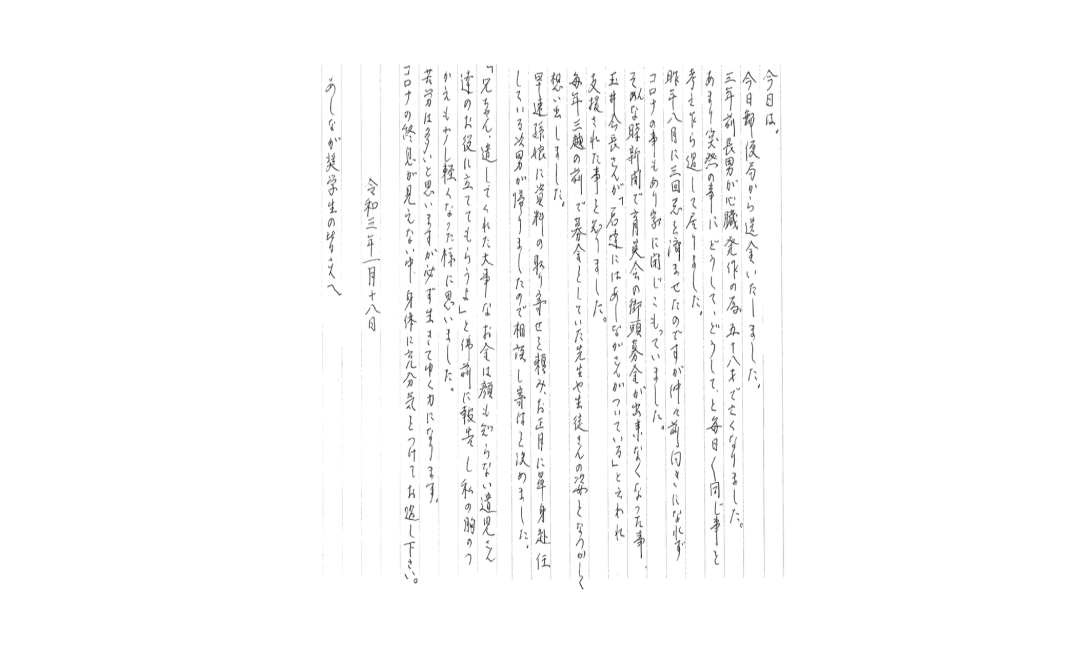 今日は。
今日郵便局から送金いたしました。
三年前長男が心臓発作の為五十八才で亡くなりました。
あまり突然の事にどうして、どうして、と毎日く同じ事を
考えながら過して居りました。
昨年八月に三回忌を済ませたのですが仲々前向きになれず
コロナの事もあり家に閉じこもっていました。
そんな時新聞で育英会の街頭募金が出来なくなった事、
玉井会長さんが「君達にはあしながさんがついている」と云われ
支援された事を知りました。
毎年三越の前で募金をしていた先生や生徒さんの姿をなつかしく
想い出しました。
早速孫娘に資料の取り寄せを頼み、お正月に単身赴任
している次男が帰りましたので相談し寄付を決めました。
「兄ちゃん、遺してくれた大事なお金は顔も知らない遺児さん
達のお役に立ててもらうよ」と佛前に報告し私の胸のつ
かえも少し軽くなった様に思いました。
苦労は多いと思いますが必ず生きてゆく力になります。
コロナの終息が見えない中、身体に充分気をつけてお過し下さい。
令和三年一月十八日
あしなが奨学生の皆さんへ